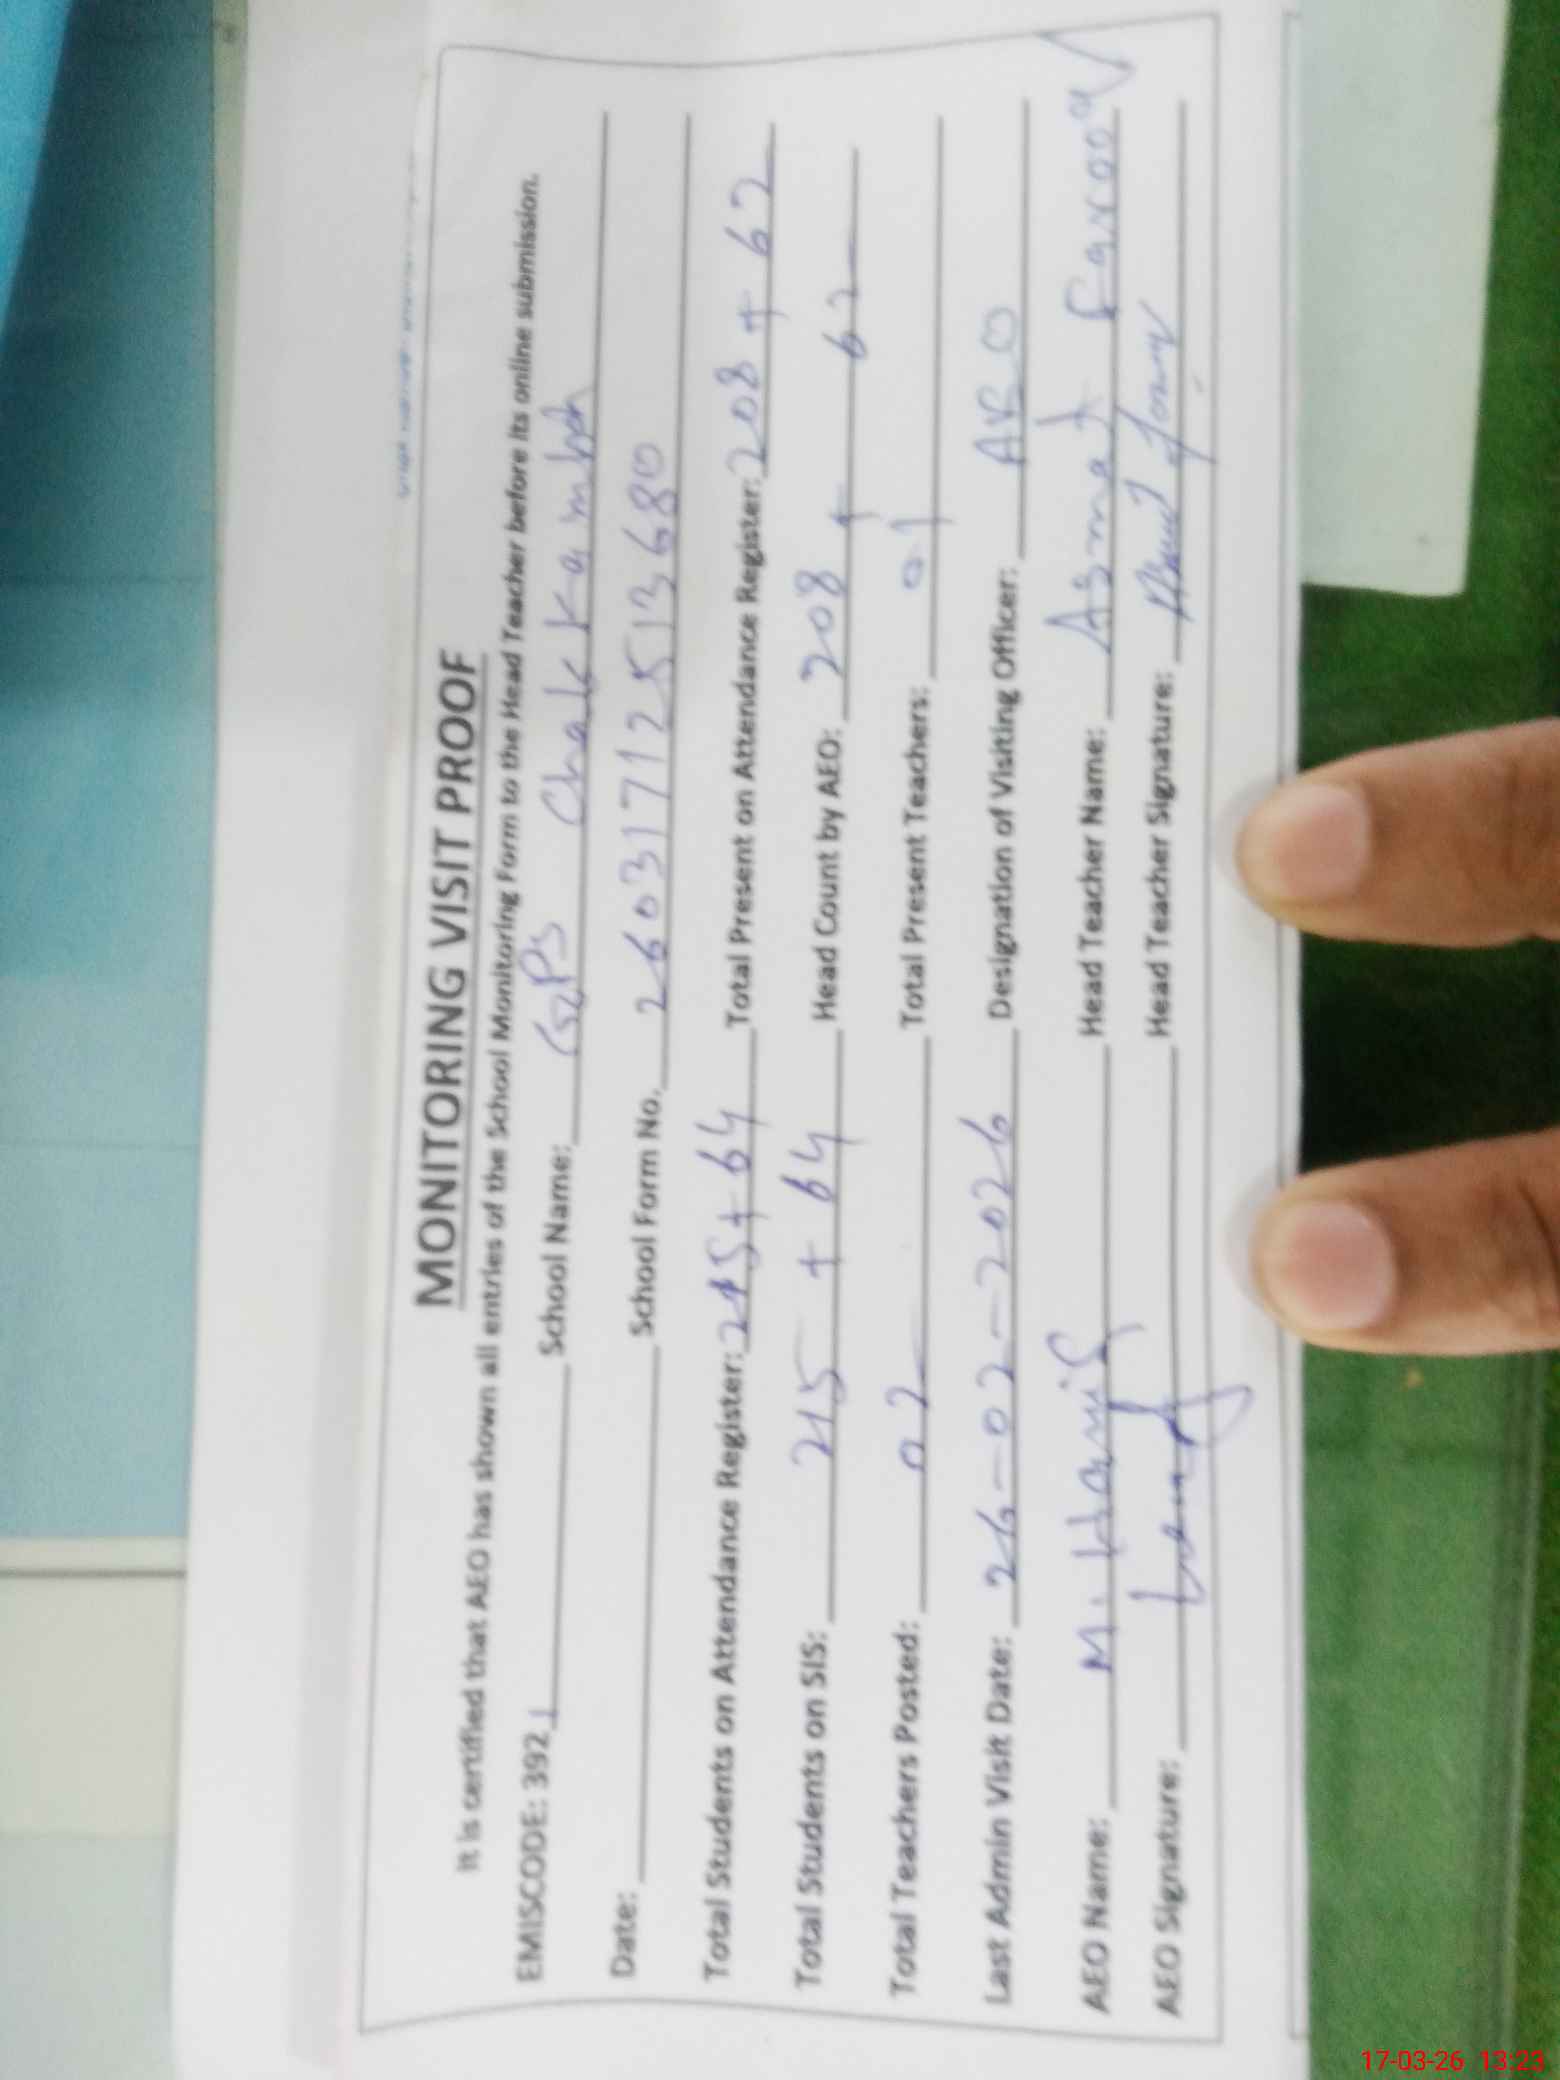 MONITORING VISIT PROOF
It is certified that AEO has shown all entries of the School Monitoring Form to the Head Teacher before its online submission.
EMISCODE: 392 1 School Name: GPS Chak Kamboh
Date: School Form No. 2603171251 3680
Total Students on Attendance Register: 215 + 64 Total Present on Attendance Register: 208 + 62
Total Students on SIS: 215 + 64 Head Count by AEO: 208 + 62
Total Teachers Posted: 02 Total Present Teachers: 01
Last Admin Visit Date: 26-02-2026 Designation of Visiting Officer: AEO
AEO Name: M. Hanif Head Teacher Name: Asmat Farooq
AEO Signature: Head Teacher Signature:
17-03-26 13:23